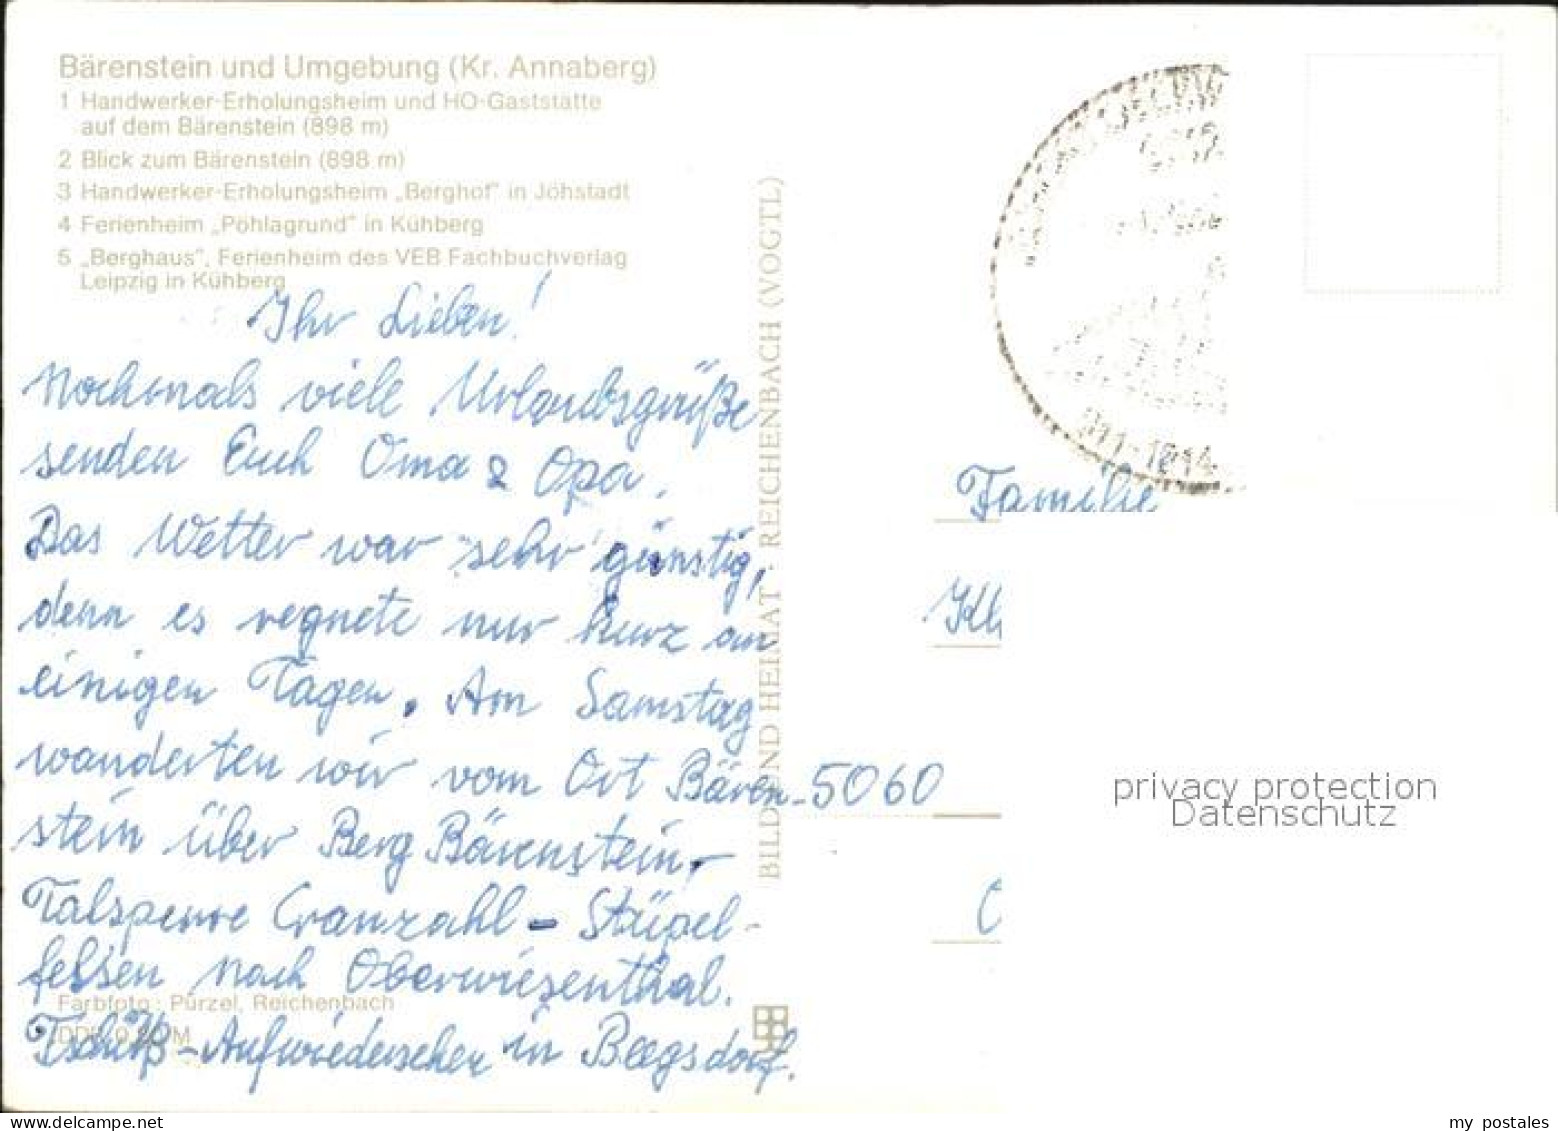 Bärenstein und Umgebung (Kr. Annaberg)
1 Handwerker-Erholungsheim und HO-Gaststätte
auf dem Bärenstein (898 m)
2 Blick zum Bärenstein (898 m)
3 Handwerker-Erholungsheim „Berghof" in Jöhstadt
4 Ferienheim „Pöhlagrund" in Kühberg
5 „Berghaus", Ferienheim des VEB Fachbuchverlag
Leipzig in Kühberg
Ihr Lieben!
Nochmals viele Urlaubsgrüße
senden Euch Oma & Opa.
Das Wetter war sehr günstig,
denn es regnete nur kurz an
einigen Tagen. Am Samstag
wanderten wir vom Ort Bären-
stein über Berg Bärenstein,
Talsperre Cranzahl - Stüpel-
felsen nach Oberwiesenthal.
Tschüß - Aufwiedersehen in
Farbfoto: Pürzel, Reichenbach
BILD UND HEIMAT REICHENBACH (VOGTL)
Familie
5060
privacy protection
Datenschutz
my postales